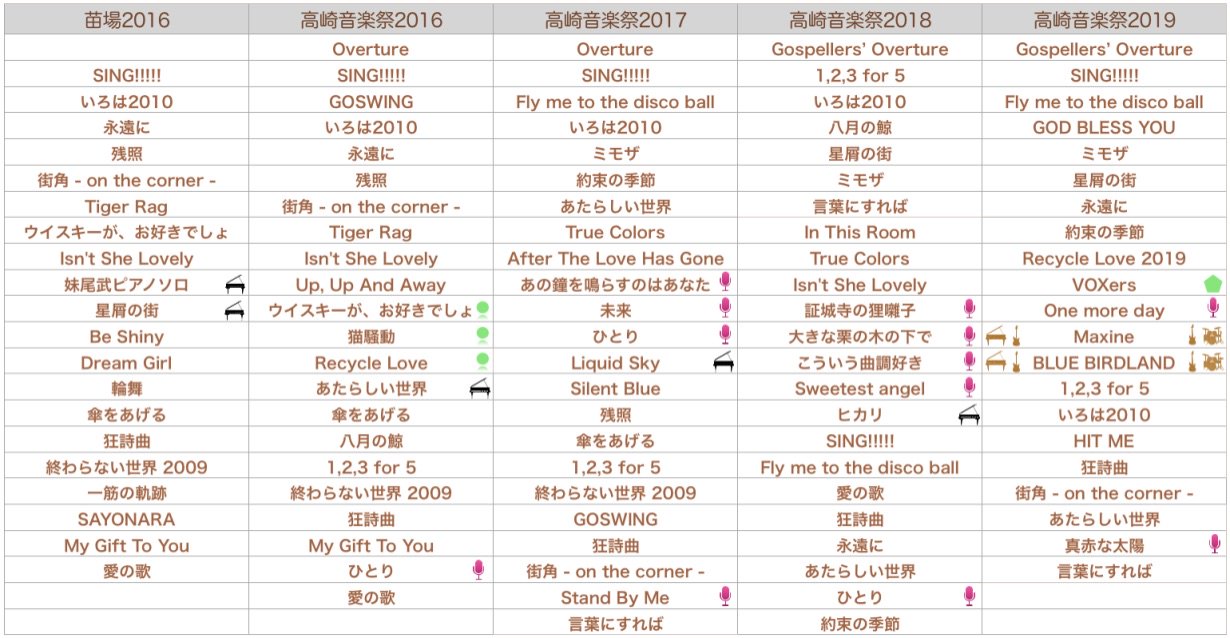 苗場2016 高崎音楽祭2016 高崎音楽祭2017 高崎音楽祭2018 高崎音楽祭2019
Overture Overture Gospellers’ Overture Gospellers’ Overture
SING!!!!! SING!!!!! SING!!!!! 1,2,3 for 5 SING!!!!!
いろは2010 GOSWING Fly me to the disco ball いろは2010 Fly me to the disco ball
永遠に いろは2010 いろは2010 八月の鯨 GOD BLESS YOU
残照 永遠に ミモザ 星屑の街 ミモザ
街角 - on the corner - 残照 約束の季節 ミモザ 星屑の街
Tiger Rag 街角 - on the corner - あたらしい世界 言葉にすれば 永遠に
ウイスキーが、お好きでしょ Tiger Rag True Colors In This Room 約束の季節
Isn't She Lovely Isn't She Lovely After The Love Has Gone True Colors Recycle Love 2019
妹尾武ピアノソロ Up, Up And Away あの鐘を鳴らすのはあなた Isn't She Lovely VOXers
星屑の街 ウイスキーが、お好きでしょ 未来 証城寺の狸囃子 One more day
Be Shiny 猫騒動 ひとり 大きな栗の木の下で Maxine
Dream Girl Recycle Love Liquid Sky こういう曲調好き BLUE BIRDLAND
輪舞 あたらしい世界 Silent Blue Sweetest angel 1,2,3 for 5
傘をあげる 傘をあげる 残照 ヒカリ いろは2010
狂詩曲 八月の鯨 傘をあげる SING!!!!! HIT ME
終わらない世界 2009 1,2,3 for 5 1,2,3 for 5 Fly me to the disco ball 狂詩曲
一筋の軌跡 終わらない世界 2009 終わらない世界 2009 愛の歌 街角 - on the corner -
SAYONARA 狂詩曲 GOSWING 狂詩曲 あたらしい世界
My Gift To You My Gift To You 狂詩曲 永遠に 真赤な太陽
愛の歌 ひとり 街角 - on the corner - あたらしい世界 言葉にすれば
愛の歌 Stand By Me ひとり
言葉にすれば 約束の季節